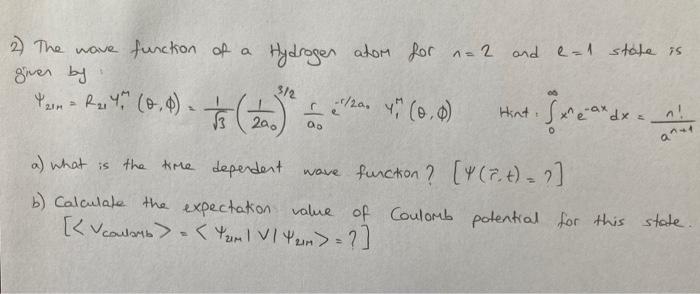 2) The wave function of a Hydrogen atom for n=2 and l=1 state is
given by :
Ψ₂₁ₘ = R₂₁ Y₁ᵐ (θ,φ) = 1/√3 (1/2a₀)^3/2 r/a₀ e^-r/2a₀ Y₁ᵐ (θ,φ) Hint : ∫₀^∞ xⁿ e^-ax dx = n!/aⁿ⁺¹
a) what is the time dependent wave function ? [Ψ(r⃗,t) = ?]
b) Calculate the expectation value of Coulomb potential for this state.
[<Vcoulomb> = <Ψ₂₁ₘ|V|Ψ₂₁ₘ> = ?]